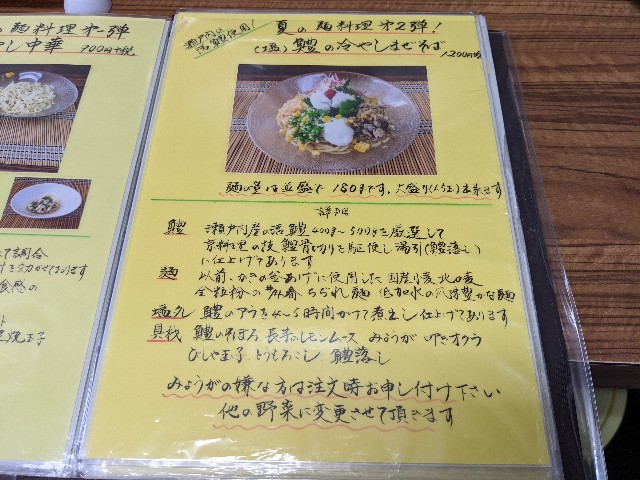 の麺料理第一弾
やし中華 900円税
瀬戸内の活鱧使用!
夏の麺料理第2弾!
(塩)鱧の冷やしまぜそば
1,200円税
麺の量は並盛で180gです。大盛り(1.5玉)出来ます
詳細
鱧 瀬戸内産の活鱧400g〜500gを厳選して
京料理の技 鱧骨切りを駆使し湯引(鱧落し)
に仕上げてあります
麺 以前、かきの釜あげに使用した国産小麦北の麦
全粒粉の ちぢれ麺 低加水の風味豊かな麺
塩ダレ 鱧のアラを4〜5時間かけて煮出し仕上げてあります
具材 鱧のそぼろ 長芋のレモンムース みょうが オクラ
玉子、とうもろこし、鱧落し
みょうがの嫌な方は注文時お申し付け下さい
他の野菜に変更させて頂きます
て調合
食感の
玉子